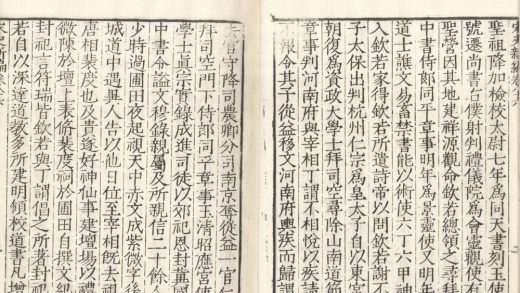 聖祖降加檢校太尉七年爲同天書刻玉使
號遷尚書右僕射判禮儀院爲會靈觀使有
聖營因其地建祥源觀命欽若總領之尋拜
中書侍郎同平章事明年爲景靈使又明年
道士譙文易畜禁書能以術使六丁六甲神
入欽若家得欽若所遺詩帝以問欽若謝不
子太保出判杭州仁宗爲皇太子自以東宮
朝復爲資政大學士拜司空尋除山南道節
章事判河南府與宰相丁謂不相悅以疾請
不報令其子從益移文河南府輿疾而歸謂
官守隆司農卿分司南京奪從益一官仁
拜司空門下侍郎同平章事玉清昭應宮使
學士真宗實錄成進司徒以郊祀恩封冀國
中書令謚文穆錄親屬及所親信二十餘人
少時過圃田夜起視天中赤文成紫微字後
城道中遇異人告以他日位至宰相既去視
唐相裴度也及貴遂好神仙事建壇場以禮
微陳於壇上表脩裴度祠於圃田自撰文紀
封祀言符瑞皆欽若與丁謂倡之所著封祀
若自以深達道教多所建明領校道書凡增